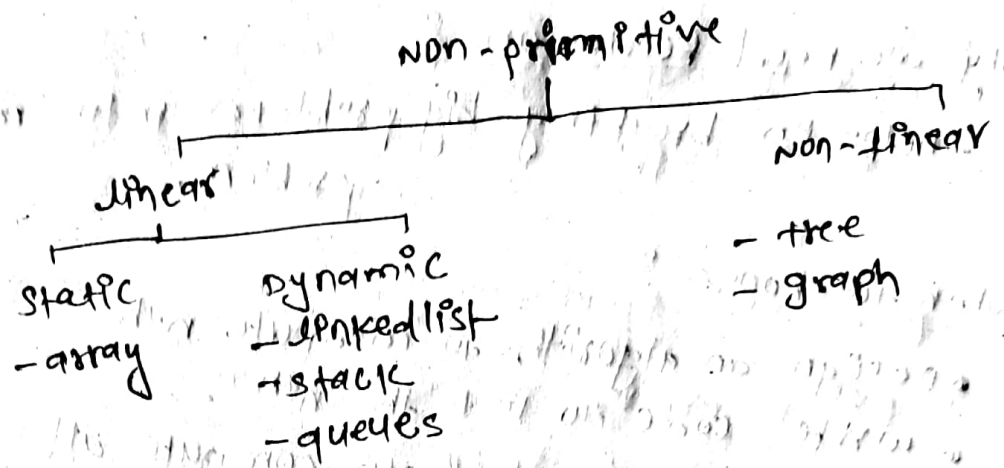 Non-priomitive
linear
Non-linear
Static
- array
Dynamic
- linkedlist
- stack
- queues
- tree
- graph